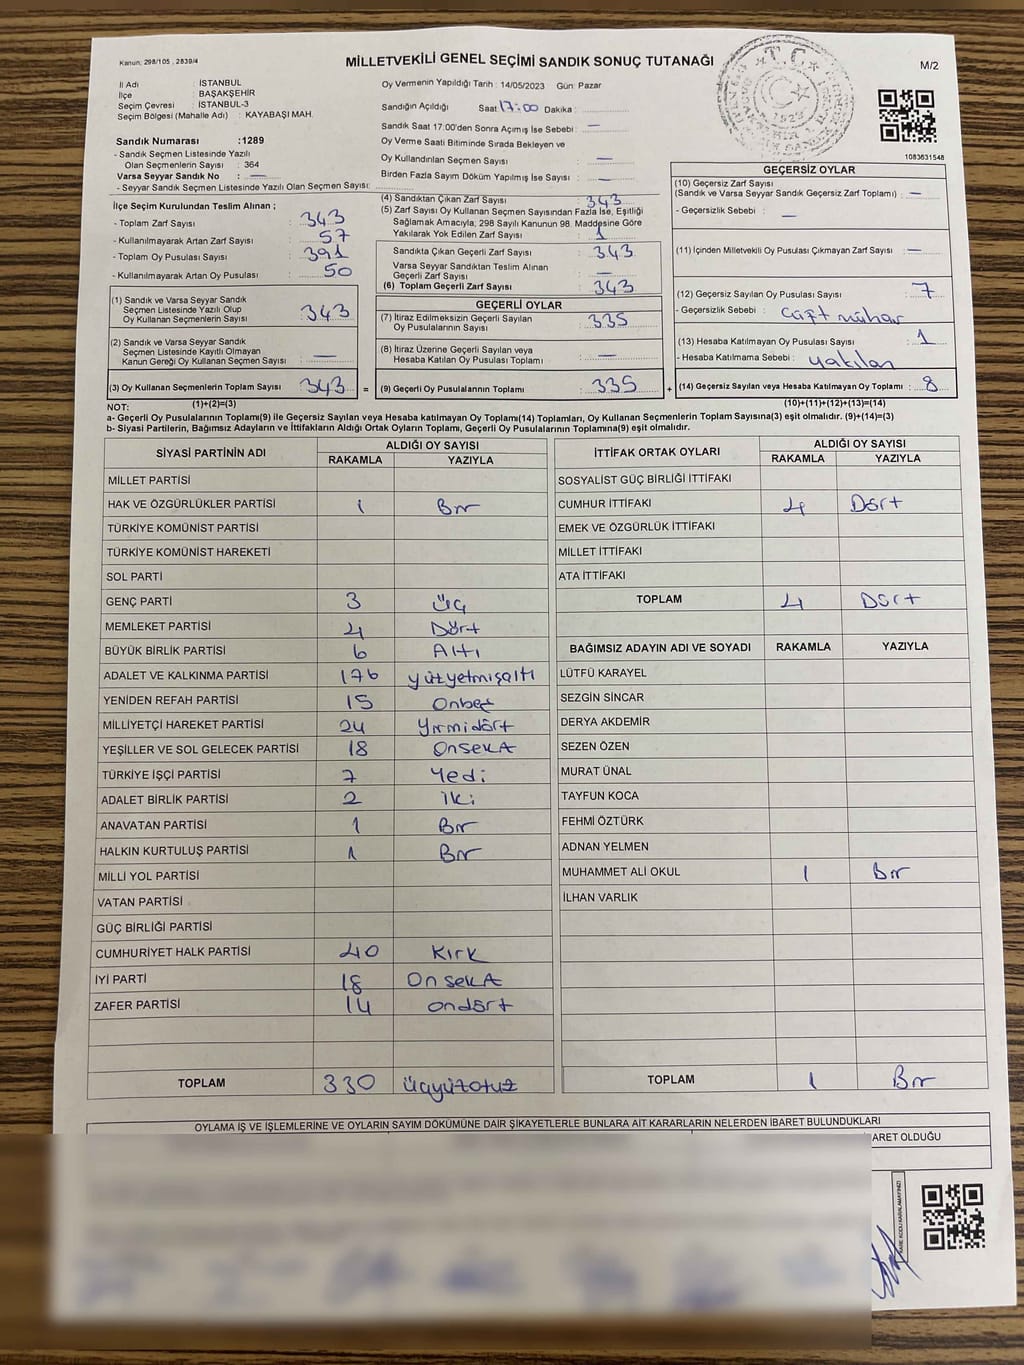 Kanun; 298/105 , 2839/4
MİLLETVEKİLİ GENEL SEÇİMİ SANDIK SONUÇ TUTANAĞI
M/2
İl Adı : İSTANBUL
İlçe : BAŞAKŞEHİR
Seçim Çevresi : İSTANBUL-3
Seçim Bölgesi (Mahalle Adı) : KAYABAŞI MAH.
Sandık Numarası :1289
- Sandık Seçmen Listesinde Yazılı
Olan Seçmenlerin Sayısı : 364
Varsa Seyyar Sandık No : —
- Seyyar Sandık Seçmen Listesinde Yazılı Olan Seçmen Sayısı:
Oy Vermenin Yapıldığı Tarih : 14/05/2023 Gün: Pazar
Sandığın Açıldığı Saat 17:00 Dakika :
Sandık Saat 17:00'den Sonra Açımış İse Sebebi : —
Oy Verme Saati Bitiminde Sırada Bekleyen ve
Oy Kullandırılan Seçmen Sayısı : —
Birden Fazla Sayım Döküm Yapılmış İse Sayısı : —
T.C.
1083631548
İlçe Seçim Kurulundan Teslim Alınan ;
- Toplam Zarf Sayısı : 343
- Kullanılmayarak Artan Zarf Sayısı : 57
- Toplam Oy Pusulası Sayısı : 391
- Kullanılmayarak Artan Oy Pusulası : 50
(1) Sandık ve Varsa Seyyar Sandık
Seçmen Listesinde Yazılı Olup
Oy Kullanan Seçmenlerin Sayısı : 343
(2) Sandık ve Varsa Seyyar Sandık
Seçmen Listesinde Kayıtlı Olmayan
Kanun Gereği Oy Kullanan Seçmen Sayısı : —
(3) Oy Kullanan Seçmenlerin Toplam Sayısı : 343 =
(1)+(2)=(3)
(4) Sandıktan Çıkan Zarf Sayısı : 343
(5) Zarf Sayısı Oy Kullanan Seçmen Sayısından Fazla İse, Eşitliği
Sağlamak Amacıyla, 298 Sayılı Kanunun 98. Maddesine Göre
Yakılarak Yok Edilen Zarf Sayısı : 1
Sandıkta Çıkan Geçerli Zarf Sayısı : 343
Varsa Seyyar Sandıktan Teslim Alınan
Geçerli Zarf Sayısı : —
(6) Toplam Geçerli Zarf Sayısı : 343
GEÇERLİ OYLAR
(7) İtiraz Edilmeksizin Geçerli Sayılan
Oy Pusulalarının Sayısı : 335
(8) İtiraz Üzerine Geçerli Sayılan veya
Hesaba Katılan Oy Pusulası Toplamı : —
(9) Geçerli Oy Pusulalarının Toplamı : 335 +
GEÇERSİZ OYLAR
(10) Geçersiz Zarf Sayısı
(Sandık ve Varsa Seyyar Sandık Geçersiz Zarf Toplamı) : —
- Geçersizlik Sebebi : —
(11) İçinden Milletvekili Oy Pusulası Çıkmayan Zarf Sayısı : —
(12) Geçersiz Sayılan Oy Pusulası Sayısı : 7
- Geçersizlik Sebebi : Çift mühür
(13) Hesaba Katılmayan Oy Pusulası Sayısı : 1
- Hesaba Katılmama Sebebi : yakılan
(14) Geçersiz Sayılan veya Hesaba Katılmayan Oy Toplamı : 8
(10)+(11)+(12)+(13)=(14)
NOT:
a- Geçerli Oy Pusulalarının Toplamı(9) ile Geçersiz Sayılan veya Hesaba katılmayan Oy Toplamı(14) Toplamları, Oy Kullanan Seçmenlerin Toplam Sayısına(3) eşit olmalıdır. (9)+(14)=(3)
b- Siyasi Partilerin, Bağımsız Adayların ve İttifakların Aldığı Ortak Oyların Toplamı, Geçerli Oy Pusulalarının Toplamına(9) eşit olmalıdır.
SİYASİ PARTİNİN ADI ALDIĞI OY SAYISI
RAKAMLA YAZIYLA
MİLLET PARTİSİ
HAK VE ÖZGÜRLÜKLER PARTİSİ 1 Bir
TÜRKİYE KOMÜNİST PARTİSİ
TÜRKİYE KOMÜNİST HAREKETİ
SOL PARTİ
GENÇ PARTİ 3 Üç
MEMLEKET PARTİSİ 4 Dört
BÜYÜK BİRLİK PARTİSİ 6 Altı
ADALET VE KALKINMA PARTİSİ 176 yüzyetmişaltı
YENİDEN REFAH PARTİSİ 15 Onbeş
MİLLİYETÇİ HAREKET PARTİSİ 24 Yirmidört
YEŞİLLER VE SOL GELECEK PARTİSİ 18 Onsekiz
TÜRKİYE İŞÇİ PARTİSİ 7 Yedi
ADALET BİRLİK PARTİSİ 2 İki
ANAVATAN PARTİSİ 1 Bir
HALKIN KURTULUŞ PARTİSİ 1 Bir
MİLLİ YOL PARTİSİ
VATAN PARTİSİ
GÜÇ BİRLİĞİ PARTİSİ
CUMHURİYET HALK PARTİSİ 40 Kırk
İYİ PARTİ 18 Onsekiz
ZAFER PARTİSİ 14 ondört
TOPLAM 330 üçyüzotuz
İTTİFAK ORTAK OYLARI ALDIĞI OY SAYISI
RAKAMLA YAZIYLA
SOSYALİST GÜÇ BİRLİĞİ İTTİFAKI
CUMHUR İTTİFAKI 4 Dört
EMEK VE ÖZGÜRLÜK İTTİFAKI
MİLLET İTTİFAKI
ATA İTTİFAKI
TOPLAM 4 Dört
BAĞIMSIZ ADAYIN ADI VE SOYADI RAKAMLA YAZIYLA
LÜTFÜ KARAYEL
SEZGİN SİNCAR
DERYA AKDEMİR
SEZEN ÖZEN
MURAT ÜNAL
TAYFUN KOCA
FEHMİ ÖZTÜRK
ADNAN YELMEN
MUHAMMET ALİ OKUL 1 Bir
İLHAN VARLIK
TOPLAM 1 Bir
OYLAMA İŞ VE İŞLEMLERİNE VE OYLARIN SAYIM DÖKÜMÜNE DAİR ŞİKAYETLERLE BUNLARA AİT KARARLARIN NELERDEN İBARET BULUNDUKLARI
ARET OLDUĞU
KARE KODU KARALAMAYINIZ!